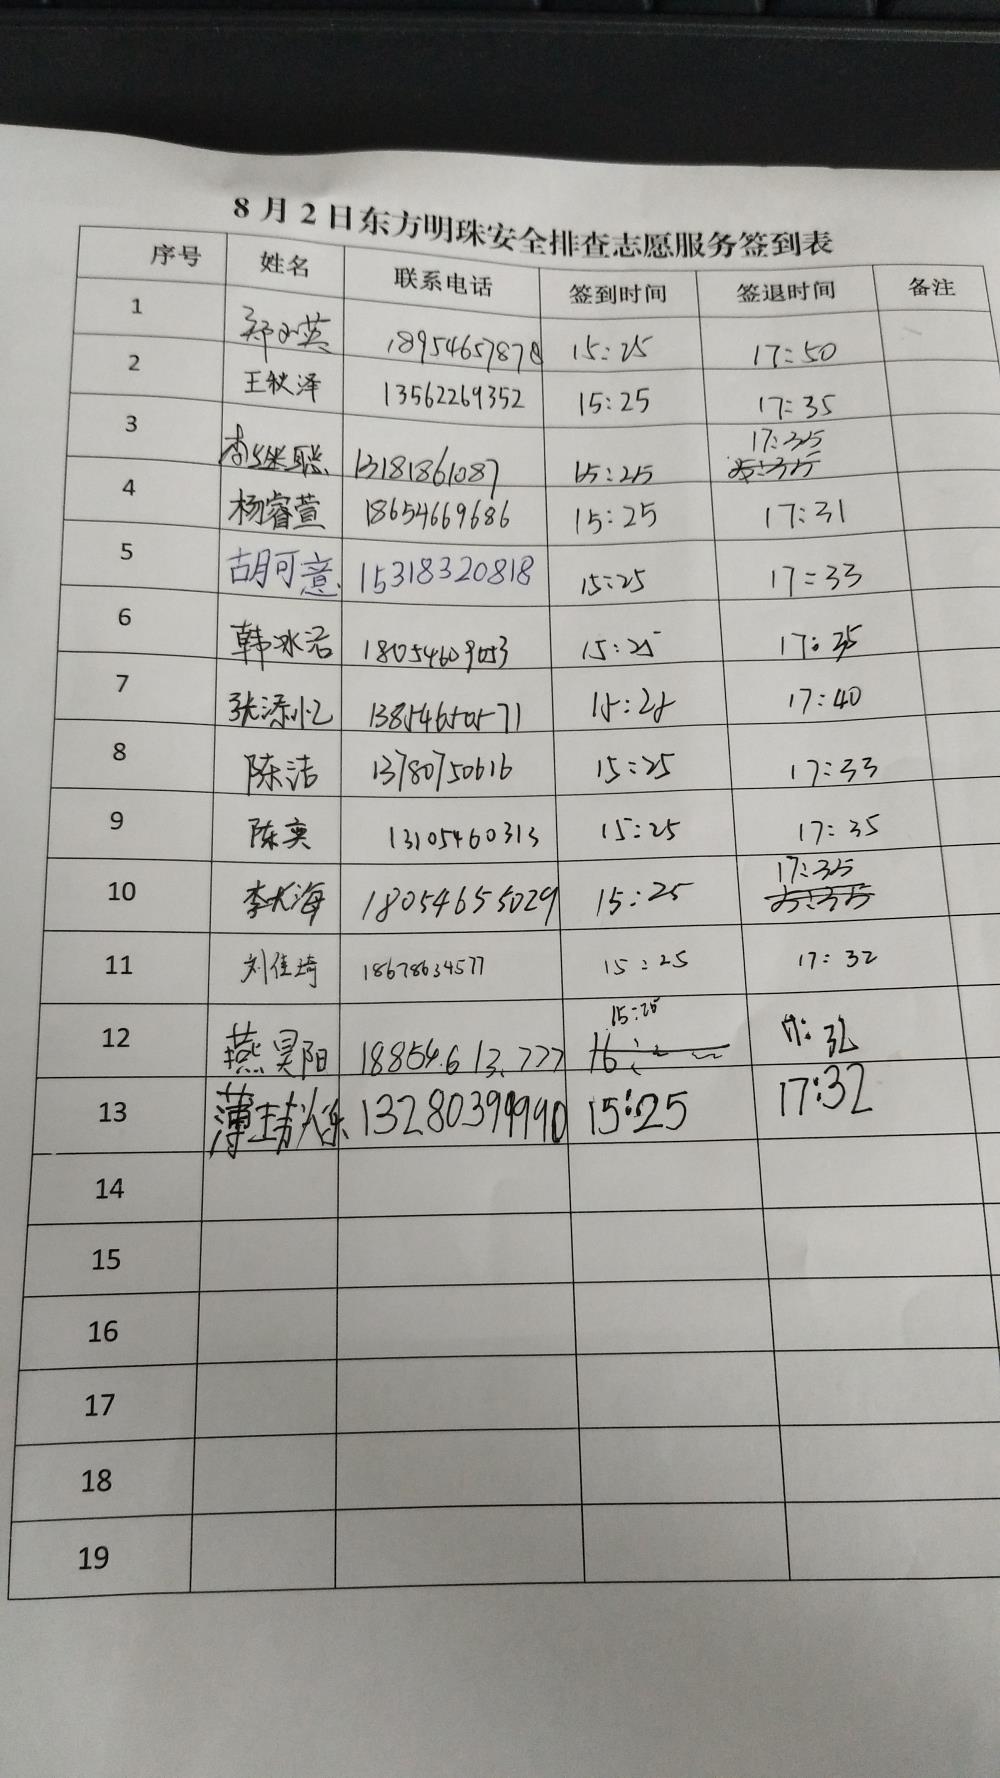 8月2日东方明珠安全排查志愿服务签到表
序号 姓名 联系电话 签到时间 签退时间 备注
1 郑小英 18954657878 15:25 17:50
2 王秋泽 13562269352 15:25 17:35
3 李继聪 13181861087 15:25 17:35
4 杨睿萱 18654669686 15:25 17:31
5 胡可意 15318320818 15:25 17:33
6 韩冰洁 18054609053 15:25 17:35
7 张添忆 13854650571 15:25 17:40
8 陈洁 13780750616 15:25 17:33
9 陈奕 13105460313 15:25 17:35
10 李大海 18054655029 15:25 17:35
11 刘佳琦 18678634577 15:25 17:32
12 燕昊阳 18854613777 15:25 17:32
13 薄 13280399990 15:25 17:32
14
15
16
17
18
19